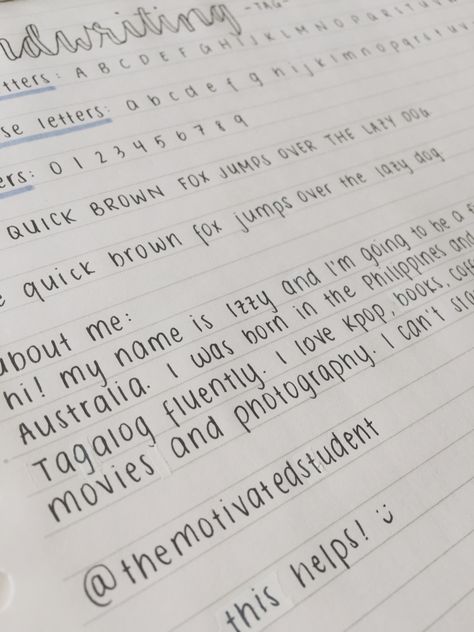 ndwriting -TAG-
tters: A B C D E F G H I J K L M N O P Q R I T U V
se letters: a b c d e f g h i j k l m n o p q r s t u v
ers: 0 1 2 3 4 5 6 7 8 9
QUICK BROWN FOX JUMPS OVER THE LAZY DOG
e quick brown fox jumps over the lazy dog
about me:
hi! my name is Izzy and I'm going to be a
Australia. I was born in the Philippines and
Tagalog fluently. I love Kpop, books,
movies and photography. I can't
@themotivatedstudent
this helps!